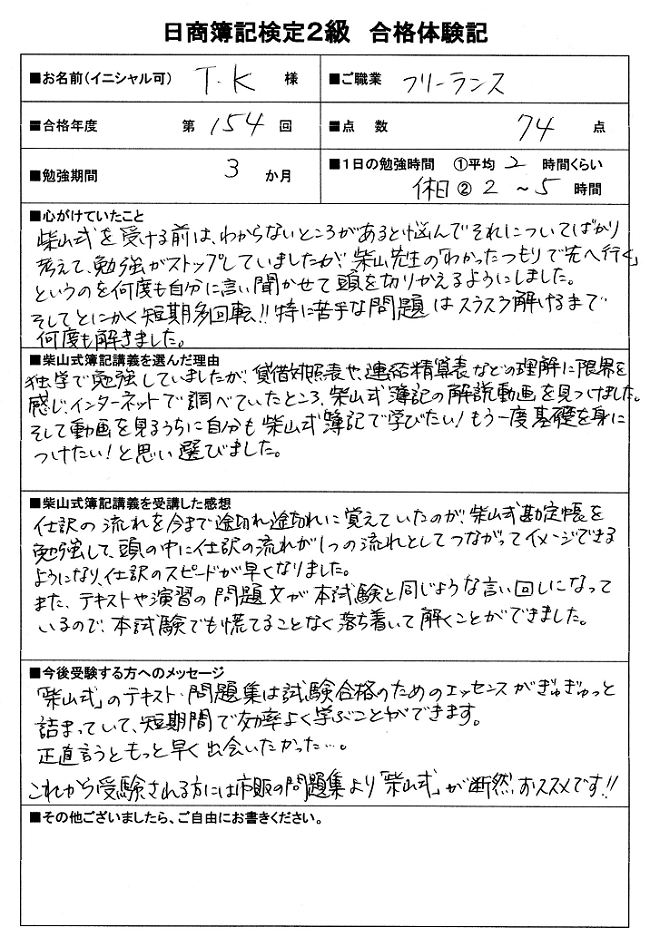 日商簿記検定2級 合格体験記
■お名前(イニシャル可) T.K 様 ■ご職業 フリーランス
■合格年度 第 154 回 ■点 数 74 点
■勉強期間 3 か月 ■1日の勉強時間 ①平均 2 時間くらい
休日② 2 ~ 5 時間
■心がけていたこと
柴山式を受ける前は、わからないところがあると悩んでそれについてばかり
考えて、勉強がストップしていましたが、柴山先生の「わかったつもりで先へ行く」
というのを何度も自分に言い聞かせて頭を切りかえるようにしました。
そしてとにかく短期多回転!!特に苦手な問題はスラスラ解けるまで
何度も解きました。
■柴山式簿記講義を選んだ理由
独学で勉強していましたが、貸借対照表や、連結精算表などの理解に限界を
感じ、インターネットで調べていたところ、柴山式簿記の解説動画を見つけました。
そして動画を見るうちに自分も柴山式簿記で学びたい!もう一度基礎を身に
つけたい!と思い選びました。
■柴山式簿記講義を受講した感想
仕訳の流れを今まで途切れ途切れに覚えていたのが、柴山式勘定帳を
勉強して、頭の中に仕訳の流れが1つの流れとしてつながってイメージできる
ようになり、仕訳のスピードが早くなりました。
また、テキストや演習の問題文が本試験と同じような言い回しになって
いるので、本試験でも慌てることなく落ち着いて解くことができました。
■今後受験する方へのメッセージ
「柴山式」のテキスト・問題集は試験合格のためのエッセンスがぎゅぎゅっと
詰まっていて、短期間で効率よく学ぶことができます。
正直言うともっと早く出会いたかった…。
これから受験される方には市販の問題集より「柴山式」が断然、オススメです!!
■その他ございましたら、ご自由にお書きください。